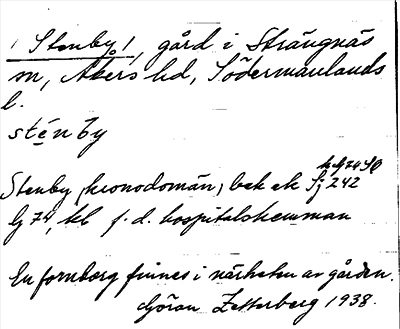 Stenby, gård i Strängnäs
sn, Åkers hd, Södermanlands
l.
sténby
Stenby, kronodomän, bek ek Sj 242
lj 74, kb f. d. hospitalshemman
En fornborg finnes i närheten av gården.
Göran Zetterberg 1938.